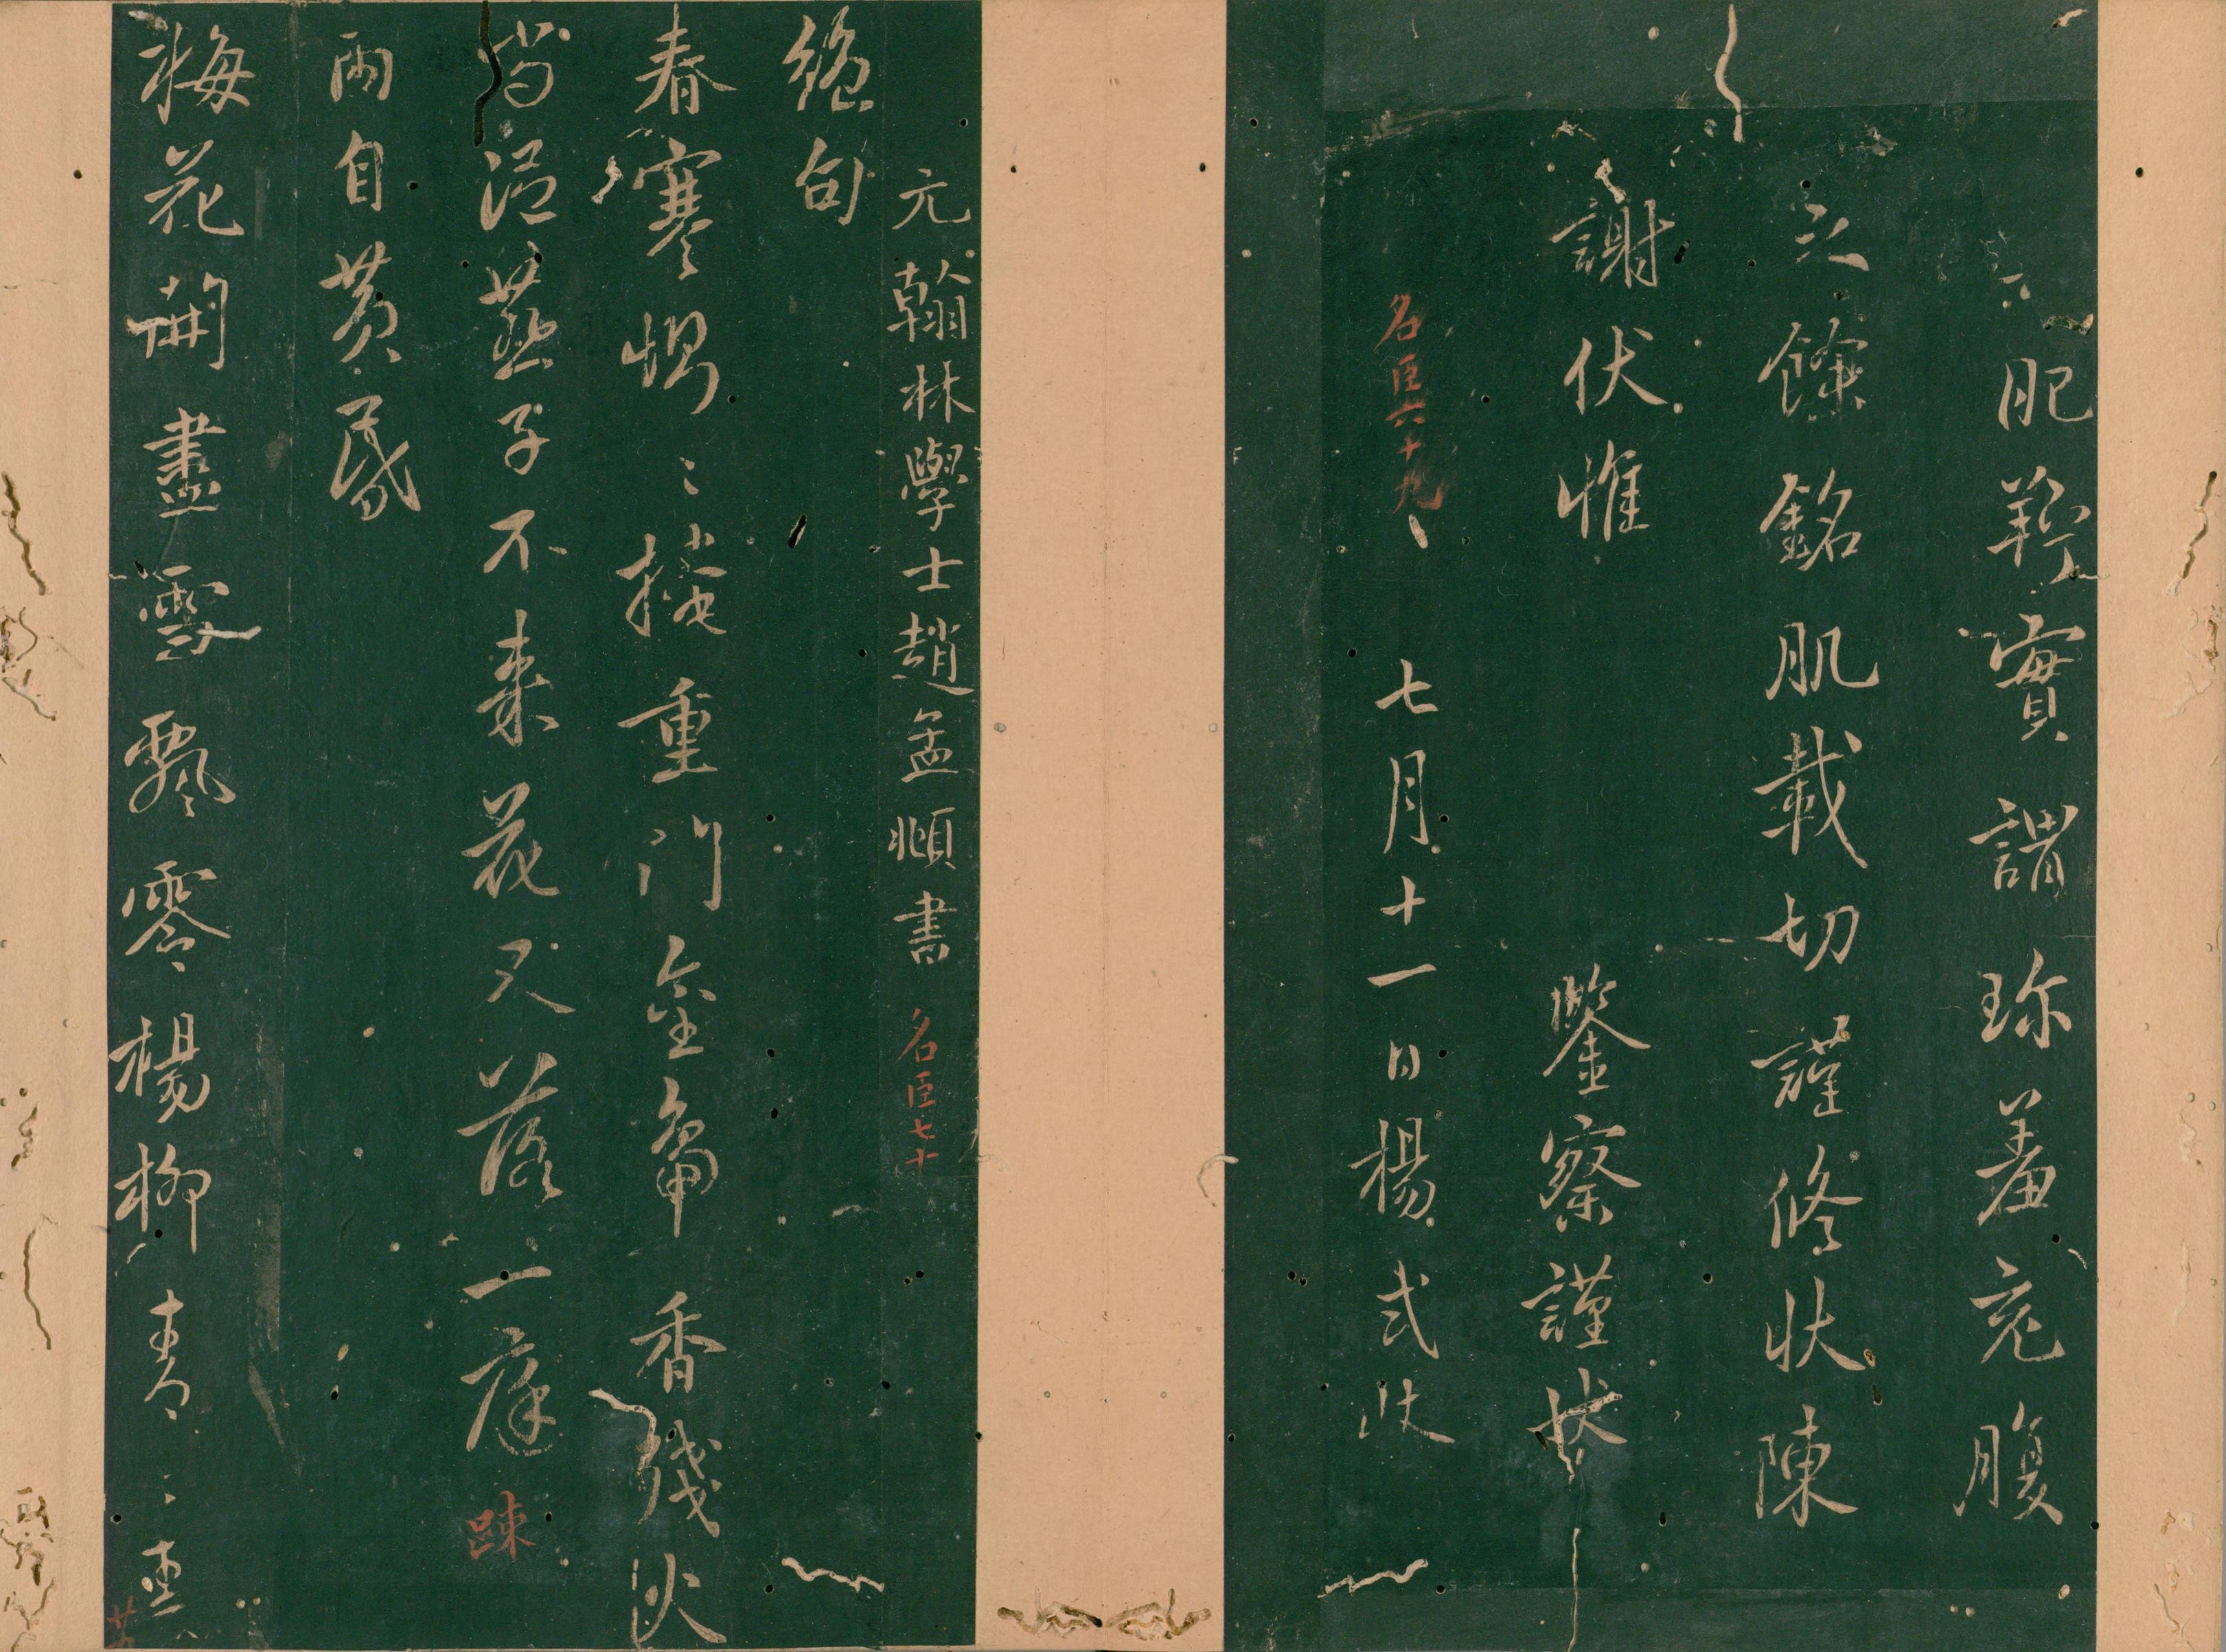 肥羜實謂珍羞充腹
之餘銘肌載切謹修狀陳
謝伏惟 鑒察謹狀
名臣六十九
七月十一日楊式狀
元翰林學士趙孟頫書 名臣七十
絕句
春寒惻〻掩重門金龜香殘火
尚温燕子不來花又落一庭踈
雨自黄昏
梅花開盡雪飄零楊柳青〻